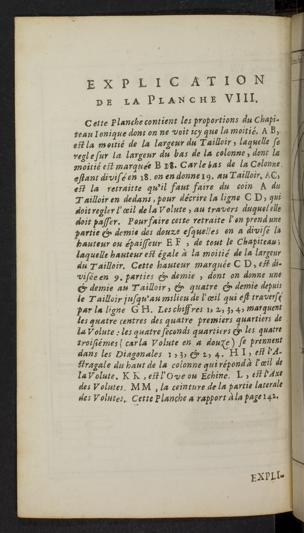 EXPLICATION
DE LA PLANCHE VIII.
Cette Planche contient les proportions du Chapi-
teau Ionique dont on ne voit icy que la moitié. AB,
est la moitié de la largeur du Tailloir, laquelle se
regle sur la largeur du bas de la colonne, dont la
moitié est marquée B 18. Car le bas de la Colonne
estant divisé en 18. on en donne 19. au Tailloir. AC,
est la retraitte qu'il faut faire du coin A du
Tailloir en dedans, pour décrire la ligne CD, qui
doit regler l'œil de la Volute, au travers duquel elle
doit passer. Pour faire cette retraite l'on prend une
partie & demie des douze esquelles on a divisé la
hauteur ou épaisseur EF, de tout le Chapiteau;
laquelle hauteur est égale à la moitié de la largeur
du Tailloir. Cette hauteur marquée CD, est di-
visée en 9. parties & demie, dont on donne une
& demie au Tailloir, & quatre & demie depuis
le Tailloir jusqu'au milieu de l'œil qui est traversé
par la ligne GH. Les chiffres 1, 2, 3, 4, marquent
les quatre centres des quatre premiers quartiers de
la Volute: les quatre seconds quartiers & les quatre
troisiémes (car la Volute en a douze) se prennent
dans les Diagonales 1, 3, & 2, 4. HI, est l'A-
stragale du haut de la colonne qui répond à l'œil de
la Volute. KK, est l'Ove ou Echine. L, est l'Axe
des Volutes. MM, la ceinture de la partie laterale
des Volutes. Cette Planche a rapport à la page 142.
EXPLI-